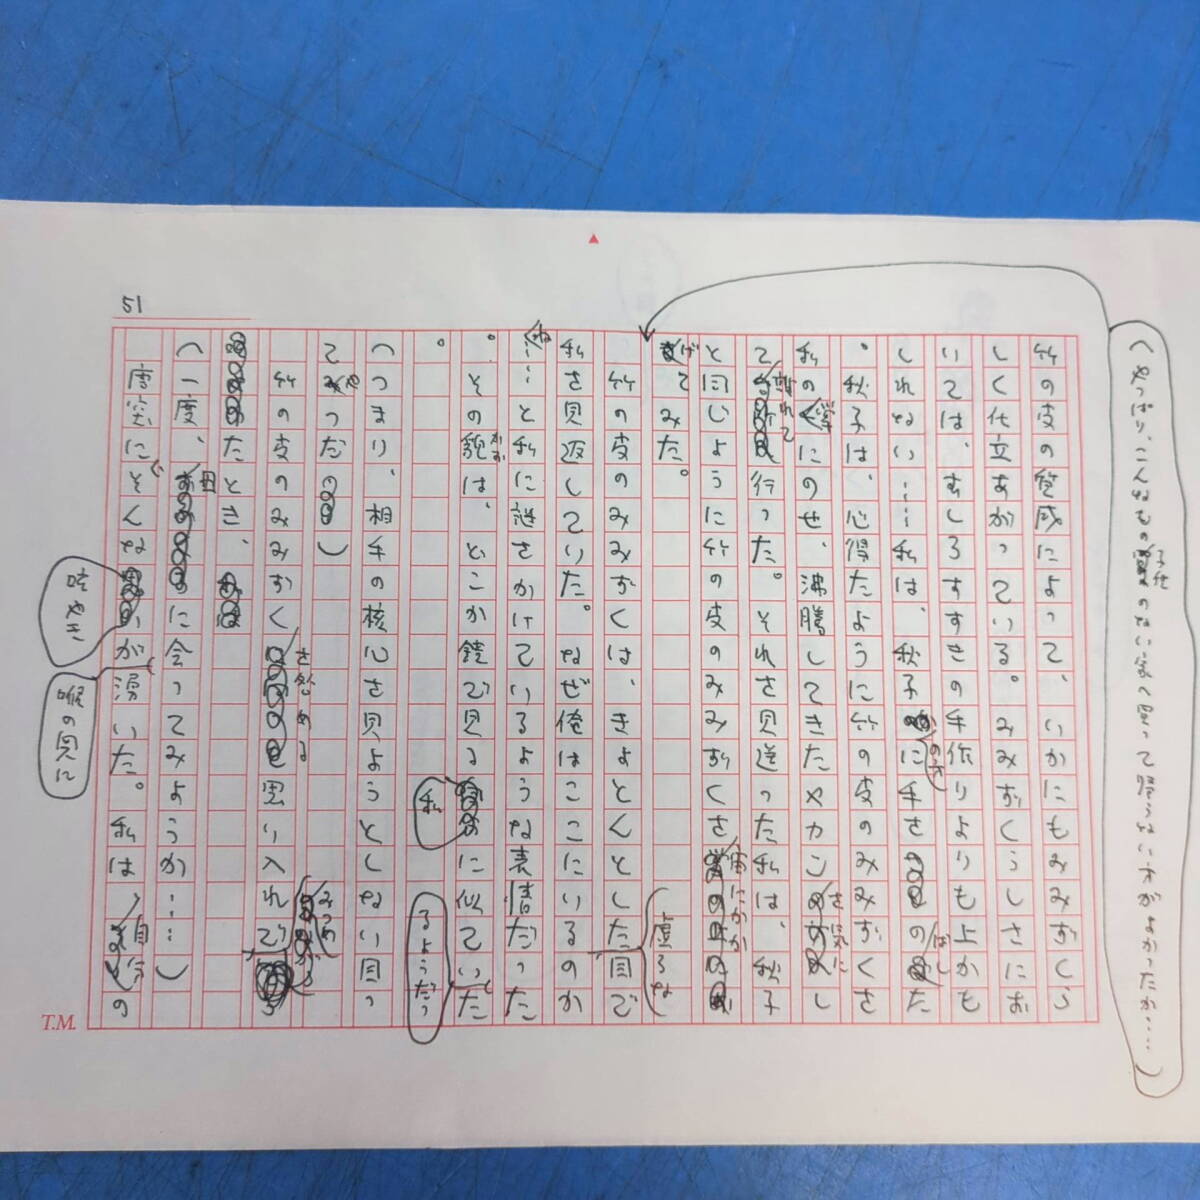 （やっぱり、こんなもの子供のない家へ買って帰らない方がよかったか……）
51
竹の皮の質感によって、いかにもみみずくら
しく仕立あがっている。みみずくらしさにお
いては、むしろすすきの手作りよりも上かも
しれない……私は、秋子に手をのばした
。秋子は、心得たように竹の皮のみみずくを
私の掌にのせ、沸騰してきたヤカンを気にし
て離れて行った。それを見送った私は、秋子
と同じように竹の皮のみみずくを宙にかか
げてみた。
竹の皮のみみずくは、きょとんとした虚ろな目で
私を見返していた。なぜ俺はここにいるのか
ね……と私に謎をかけているような表情だった
。その貌は、どこか鏡で見る私に似ているようだっ
た
。
（つまり、相手の核心を見ようとしない目っ
てやつだ）
竹の皮のみみずくを
思い入れで
たとき、
（一度、母に会ってみようか……）
唐突にそんな呟やきが喉の奥に湧いた。私は、自分の
T.M.